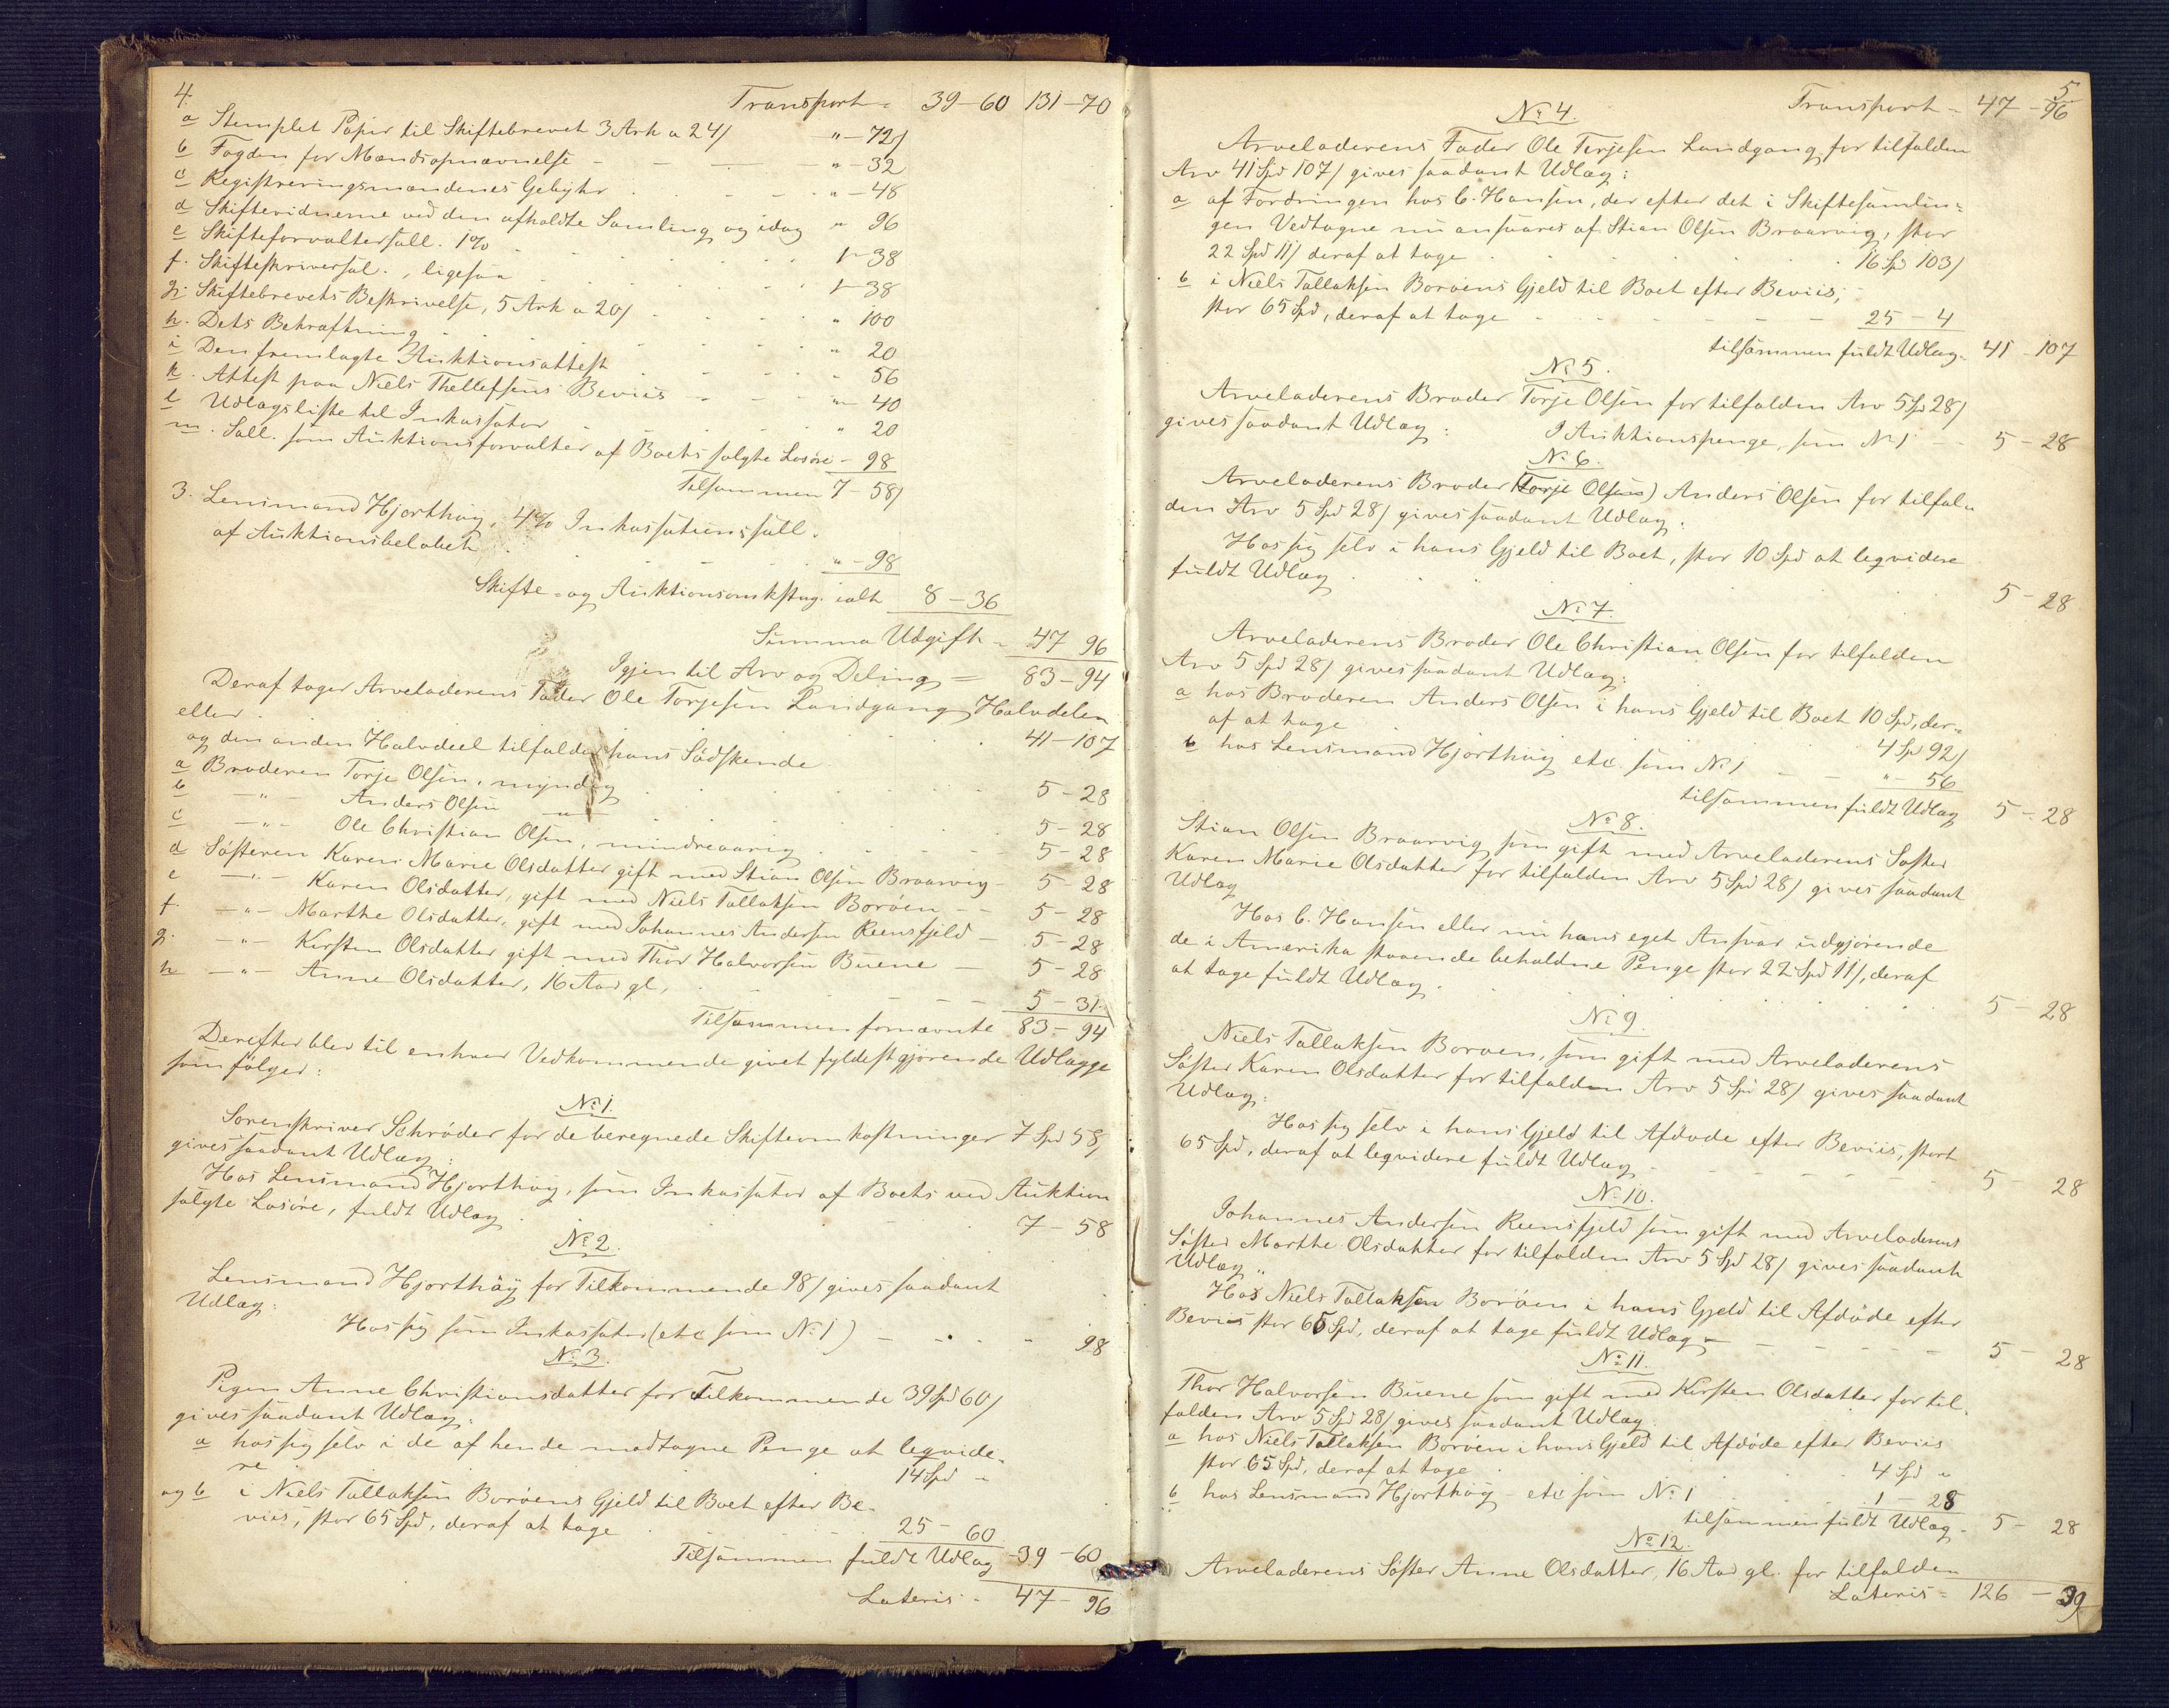 4.
Transport = 39-60 131-70
a Stemplet Papir til Skiftebrevet 3 Ark a 24/ " - 72/
b Fogden for Mændsopnævnelse - - - " - 32
c Registreringsmændenes Gebyhr . . - - - " - 48
d Skiftevidnerne ved den afholdte Samling og idag " 96
e Skifteforvaltersall. 1% . . . . . 1-38
f. Skifteskriversal. , ligesaa . . . . 1-38
g. Skiftebrevets Beskrivelse, 5 Ark a 20/ . . . . " 100
h. Dets Bekræftning . . . . . " 20
i Den fremlagte Auktionsattest . . . . 56
k. Attest paa Niels Thellefsens Beviis - - - " - 40
l Udlægsliste til Inkassator . . . . " 20
m. Sall. som Auktionsforvalter af Boets solgte Løsøre - 98
Tilsammen 7-58/
3. Lensmand Hjorthøy, 4% Inkassationssall.
af Auktionsbeløbet . . . . . " - 98
Skifte- og Auktionsomkstng. ialt 8-36
Summa Udgift = 47 96
Igjen til Arv og Deling = 83-94
Deraf tager Arveladerens Fader Ole Torjesen Landgang Halvdelen
eller . . . . . 41-107
og den anden Halvdeel tilfalder hans Sødskende
a Broderen Torje Olsen, myndig . . . . 5-28
b - " - Anders Olsen - " - . . . . 5-28
c - " - Ole Christian Olsen, mindreaarig . . - - 5-28
d Søsteren Karen Marie Olsdatter gift med Stian Olsen Braarvig - 5-28
e - " - Karen Olsdatter, gift med Niels Tallaksen Borøen - - 5-28
f. - " - Marthe Olsdatter, gift med Johannes Andersen Reensfjeld - 5-28
g. - " - Kirsten Olsdatter gift med Thor Halvorsen Buene - 5-28
h - " - Anne Olsdatter, 16 Aar gl, . - - - - 5-31.
Tilsammen fornævnte 83-94
Derefter blev til enhver Vedkommende givet fyldestgjørende Udlægge
som følger:
No 1.
Sorenskriver Schrøder for de beregnede Skifteomkostninger 7 Spd 58/
gives saadant Udlæg:
Hos Lensmand Hjorthøy, som Inkassator af Boets ved Auktion
solgte Løsøre, fuldt Udlæg . . . . 7-58
No 2.
Lensmand Hjorthøy for Tilkommende 98/ gives saadant
Udlæg:
Hos sig som Inkassator (etc som No 1) - - - - 98
No 3.
Pigen Anne Christiansdatter for Tilkommende 39 Spd 60/
gives saadant Udlæg:
a hos sig selv i de af hende modtagne Penge at leqvide-
re 14 Spd "
og b i Niels Tallaksen Borøens Gjeld til Boet efter Be-
viis, stor 65 Spd, deraf at tage . . - - . 25-60
Tilsammen fuldt Udlæg - 39-60
Lateris - 47-96
5
Transport = 47-96
No 4.
Arveladerens Fader Ole Terjesen Landgang for tilfalden
Arv 41 Spd 107/ gives saadant Udlæg:
a af Fordringen hos C. Hansen, der efter det i Skiftesamlin=
gen Vedtagne nu ansvares af Stian Olsen Braarvig, stor
22 Spd 11/ deraf at tage . . . . 16 Sp 103/
b i Niels Tallaksen Borøens Gjeld til Boet efter Beviis,
stor 65 Spd, deraf at tage - - - - 25-4
tilsammen fuldt Udlæg = 41-107
No 5.
Arveladerens Broder Torje Olsen for tilfalden Arv 5 Sp 28/
gives saadant Udlæg: I Auktionspenge, som No 1 - - 5-28
No 6.
Arveladerens Broder (Torje Olsens) Anders Olsen for tilfal=
den Arv 5 Spd 28/ gives saadant Udlæg:
Hos sig selv i hans Gjeld til Boet, stor 10 Spd at leqvidere
fuldt Udlæg . . . . . 5-28
No 7.
Arveladerens Broder Ole Christian Olsen for tilfalden
Arv 5 Spd 28/ gives saadant Udlæg:
a hos Broderen Anders Olsen i hans Gjeld til Boet 10 Spd, der=
af at tage 4 Spd 92/
b hos Lensmand Hjorthøy etc. som No 1 - - " - 56
tilsammen fuldt Udlæg 5-28
No 8.
Stian Olsen Braarvig som gift med Arveladerens Søster
Karen Marie Olsdatter for tilfalden Arv 5 Spd 28/ gives saadant
Udlæg
Hos C. Hansen eller nu hans eget Ansvar udgjørende
de i Amerika staaende beholdne Penge stor 22 Spd 11/, deraf
at tage fuldt Udlæg. . . . . 5-28
No 9.
Niels Tallaksen Borøen, som gift med Arveladerens
Søster Karen Olsdatter for tilfalden Arv 5 Spd 28/ gives saadant
Udlæg:
Hos sig selv i hans Gjeld til Afdøde efter Beviis, stort
65 Spd, deraf at leqvidere fuldt Udlæg - - - - 5-28
No 10.
Johannes Andersen Reensfjeld som gift med Arveladerens
Søster Marthe Olsdatter for tilfalden Arv 5 Spd 28/ gives saadant
Udlæg "
Hos Niels Tallaksen Borøen i hans Gjeld til Afdøde efter
Beviis stor 65 Spd, deraf at tage fuldt Udlæg - - - - 5-28
No 11.
Thor Halvorsen Buene som gift med Kirsten Olsdatter for til-
falden Arv 5 Spd 28/ gives saadant Udlæg:
a hos Niels Tallaksen Borøen i hans Gjeld til Afdøde efter Beviis
stor 65 Spd, deraf at tage . . . 4 Spd "
b hos Lensmand Hjorthøy - etc som No 1 . . . 1-28
tilsammen fuldt Udlæg - 5-28
No 12.
Arveladerens Søster Anne Olsdatter, 16 Aar gl. for tilfalden
Lateris = 126-39